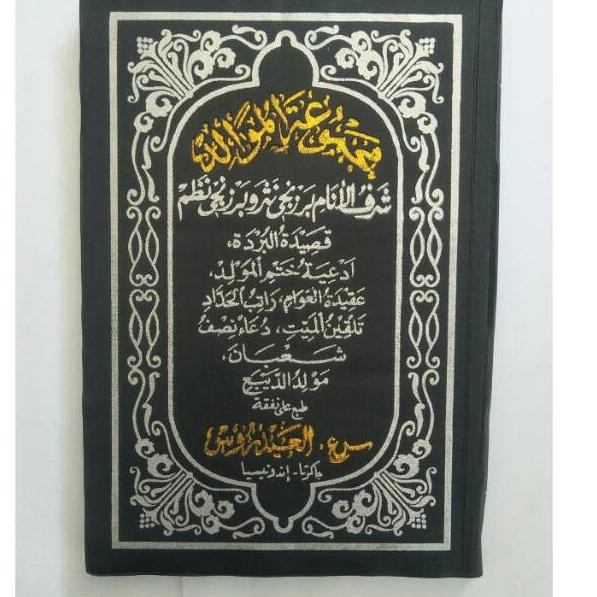 مجموعة الموالد
شرف الأنام برزنجي نثر وبرزنجي نظم
قصيدة البردة،
أدعية ختم المولد،
عقيدة العوام، راتب الحداد
تلقين الميت، دعاء نصف
شعبان،
مولد الديبع
طبع على نفقة
س.ع. العيدروس
جاكرتا - إندونيسيا